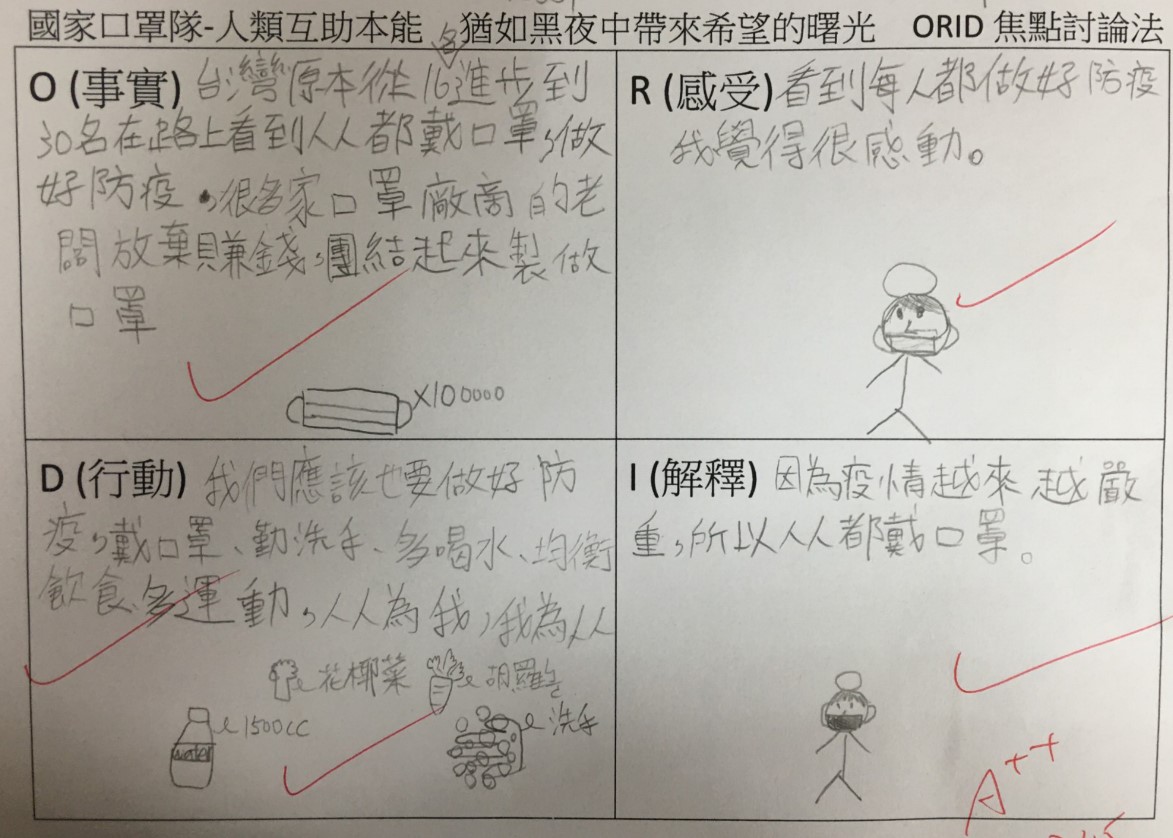 國家口罩隊-人類互助本能 猶如黑夜中帶來希望的曙光 ORID 焦點討論法
O (事實) 台灣原本從16名進步到
30名在路上看到人人都戴口罩,做
好防疫,很多家口罩廠商的老
闆放棄賺錢,團結起來製做
口罩
X100000
R (感受) 看到每人都做好防疫
我覺得很感動。
D (行動) 我們應該也要做好防
疫,戴口罩、勤洗手、多喝水、均衡
飲食、多運動,人人為我,我為人人
花椰菜
胡羅蔔
1500cc
water
洗手
I (解釋) 因為疫情越來越嚴
重,所以人人都戴口罩。
A++